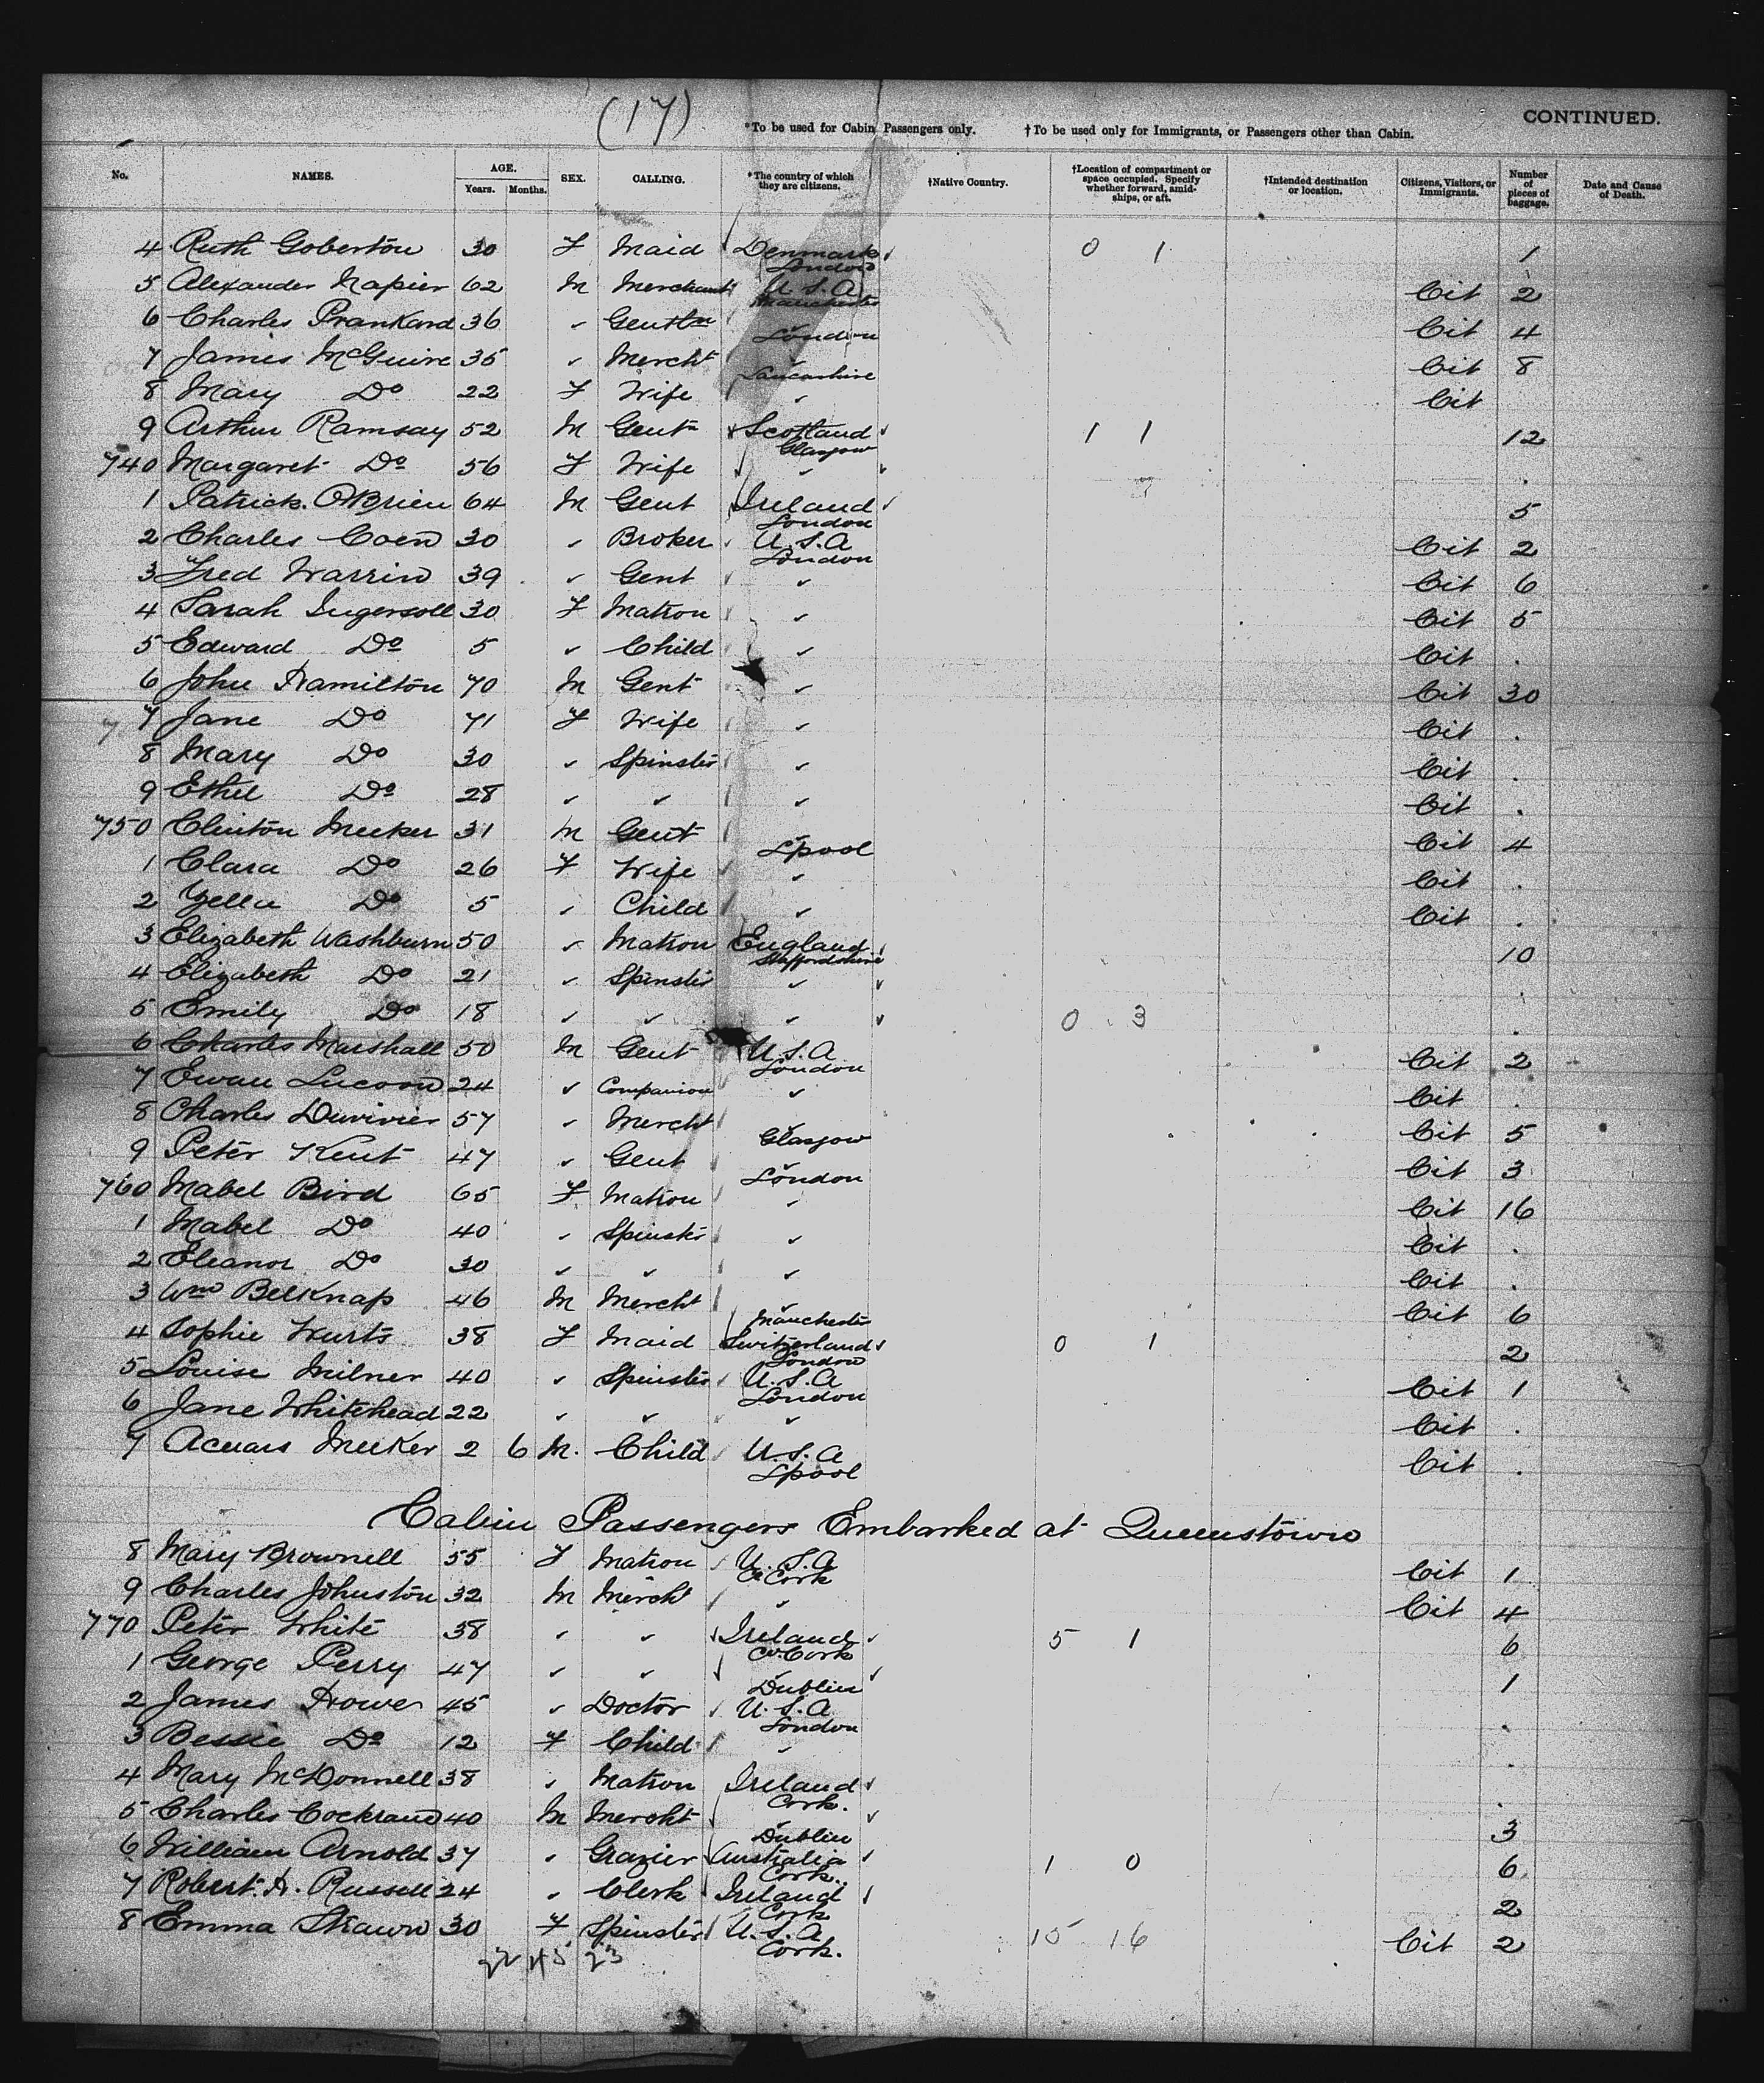 (17)
*To be used for Cabin Passengers only. †To be used only for Immigrants, or Passengers other than Cabin. CONTINUED.
No. NAMES. AGE. Years. Months. SEX. CALLING. *The country of which they are citizens. †Native Country. †Location of compartment or space occupied. Specify whether forward, amidships, or aft. †Intended destination or location. Citizens, Visitors, or Immigrants. Number of pieces of baggage. Date and Cause of Death.
4 Ruth Goberton 30 F Maid Denmark London 0 1 1
5 Alexander Napier 62 M Merchant U.S.A Manchester Cit 2
6 Charles Prankard 36 " Gentln " London Cit 4
7 James McGuire 35 " Mercht " Lancashire Cit 8
8 Mary Do 22 F Wife " Cit
9 Arthur Ramsay 52 M Gentn Scotland Glasgow 1 1 12
740 Margaret Do 56 F Wife " .
1 Patrick O'Brien 64 M Gent Ireland London 5
2 Charles Coen 30 " Broker U.S.A London Cit 2
3 Fred Warrin 39 " Gent " Cit 6
4 Sarah Ingersoll 30 F Matron " Cit 5
5 Edward Do 5 " Child " Cit .
6 John Hamilton 70 M Gent " Cit 30
7 Jane Do 71 F Wife " Cit .
8 Mary Do 30 " Spinster " Cit .
9 Ethel Do 28 " " " Cit .
750 Clinton Meeker 31 M Gent " Lpool Cit 4
1 Clara Do 26 F Wife " Cit .
2 Do 5 " Child " Cit .
3 Elizabeth Washburn 50 " Matron England Staffordshire 10
4 Elizabeth Do 21 " Spinster " .
5 Emily Do 18 " " " 0 3 .
6 Charles Marshall 50 M Gent U.S.A London Cit 2
7 Ewan 24 " Companion " Cit .
8 Charles Duvivier 57 " Mercht " Glasgow Cit 5
9 Peter Kent 47 " Gent " London Cit 3
760 Mabel Bird 65 F Matron " Cit 16
1 Mabel Do 40 " Spinster " Cit .
2 Eleanor Do 30 " " " Cit .
3 Wm Belknap 46 M Mercht " Manchester Cit 6
4 Sophie Wurts 38 F Maid Switzerland London 0 1 2
5 Louise Milner 40 " Spinster U.S.A London Cit 1
6 Jane Whitehead 22 " " " Cit .
7 Meeker 2 6 M. Child U.S.A Lpool Cit .
Cabin Passengers Embarked at Queenstown
8 Mary Brownell 55 F Matron U.S.A Co Cork Cit 1
9 Charles Johnston 32 M Mercht " Cit 4
770 Peter White 38 " " Ireland Co. Cork 5 1 6
1 George Perry 47 " " " Dublin 1
2 James Howe 45 " Doctor U.S.A London .
3 Bessie Do 12 F Child " .
4 Mary McDonnell 38 " Matron Ireland Cork. .
5 Charles Cockrand 40 M Mercht " Dublin 3
6 William Arnold 37 " Grazier Australia Cork. 1 0 6
7 Robert. H. Russell 24 " Clerk Ireland Cork 2
8 Emma Shawn 30 F Spinster U.S.A Cork. 15 16 Cit 2
22 45 23